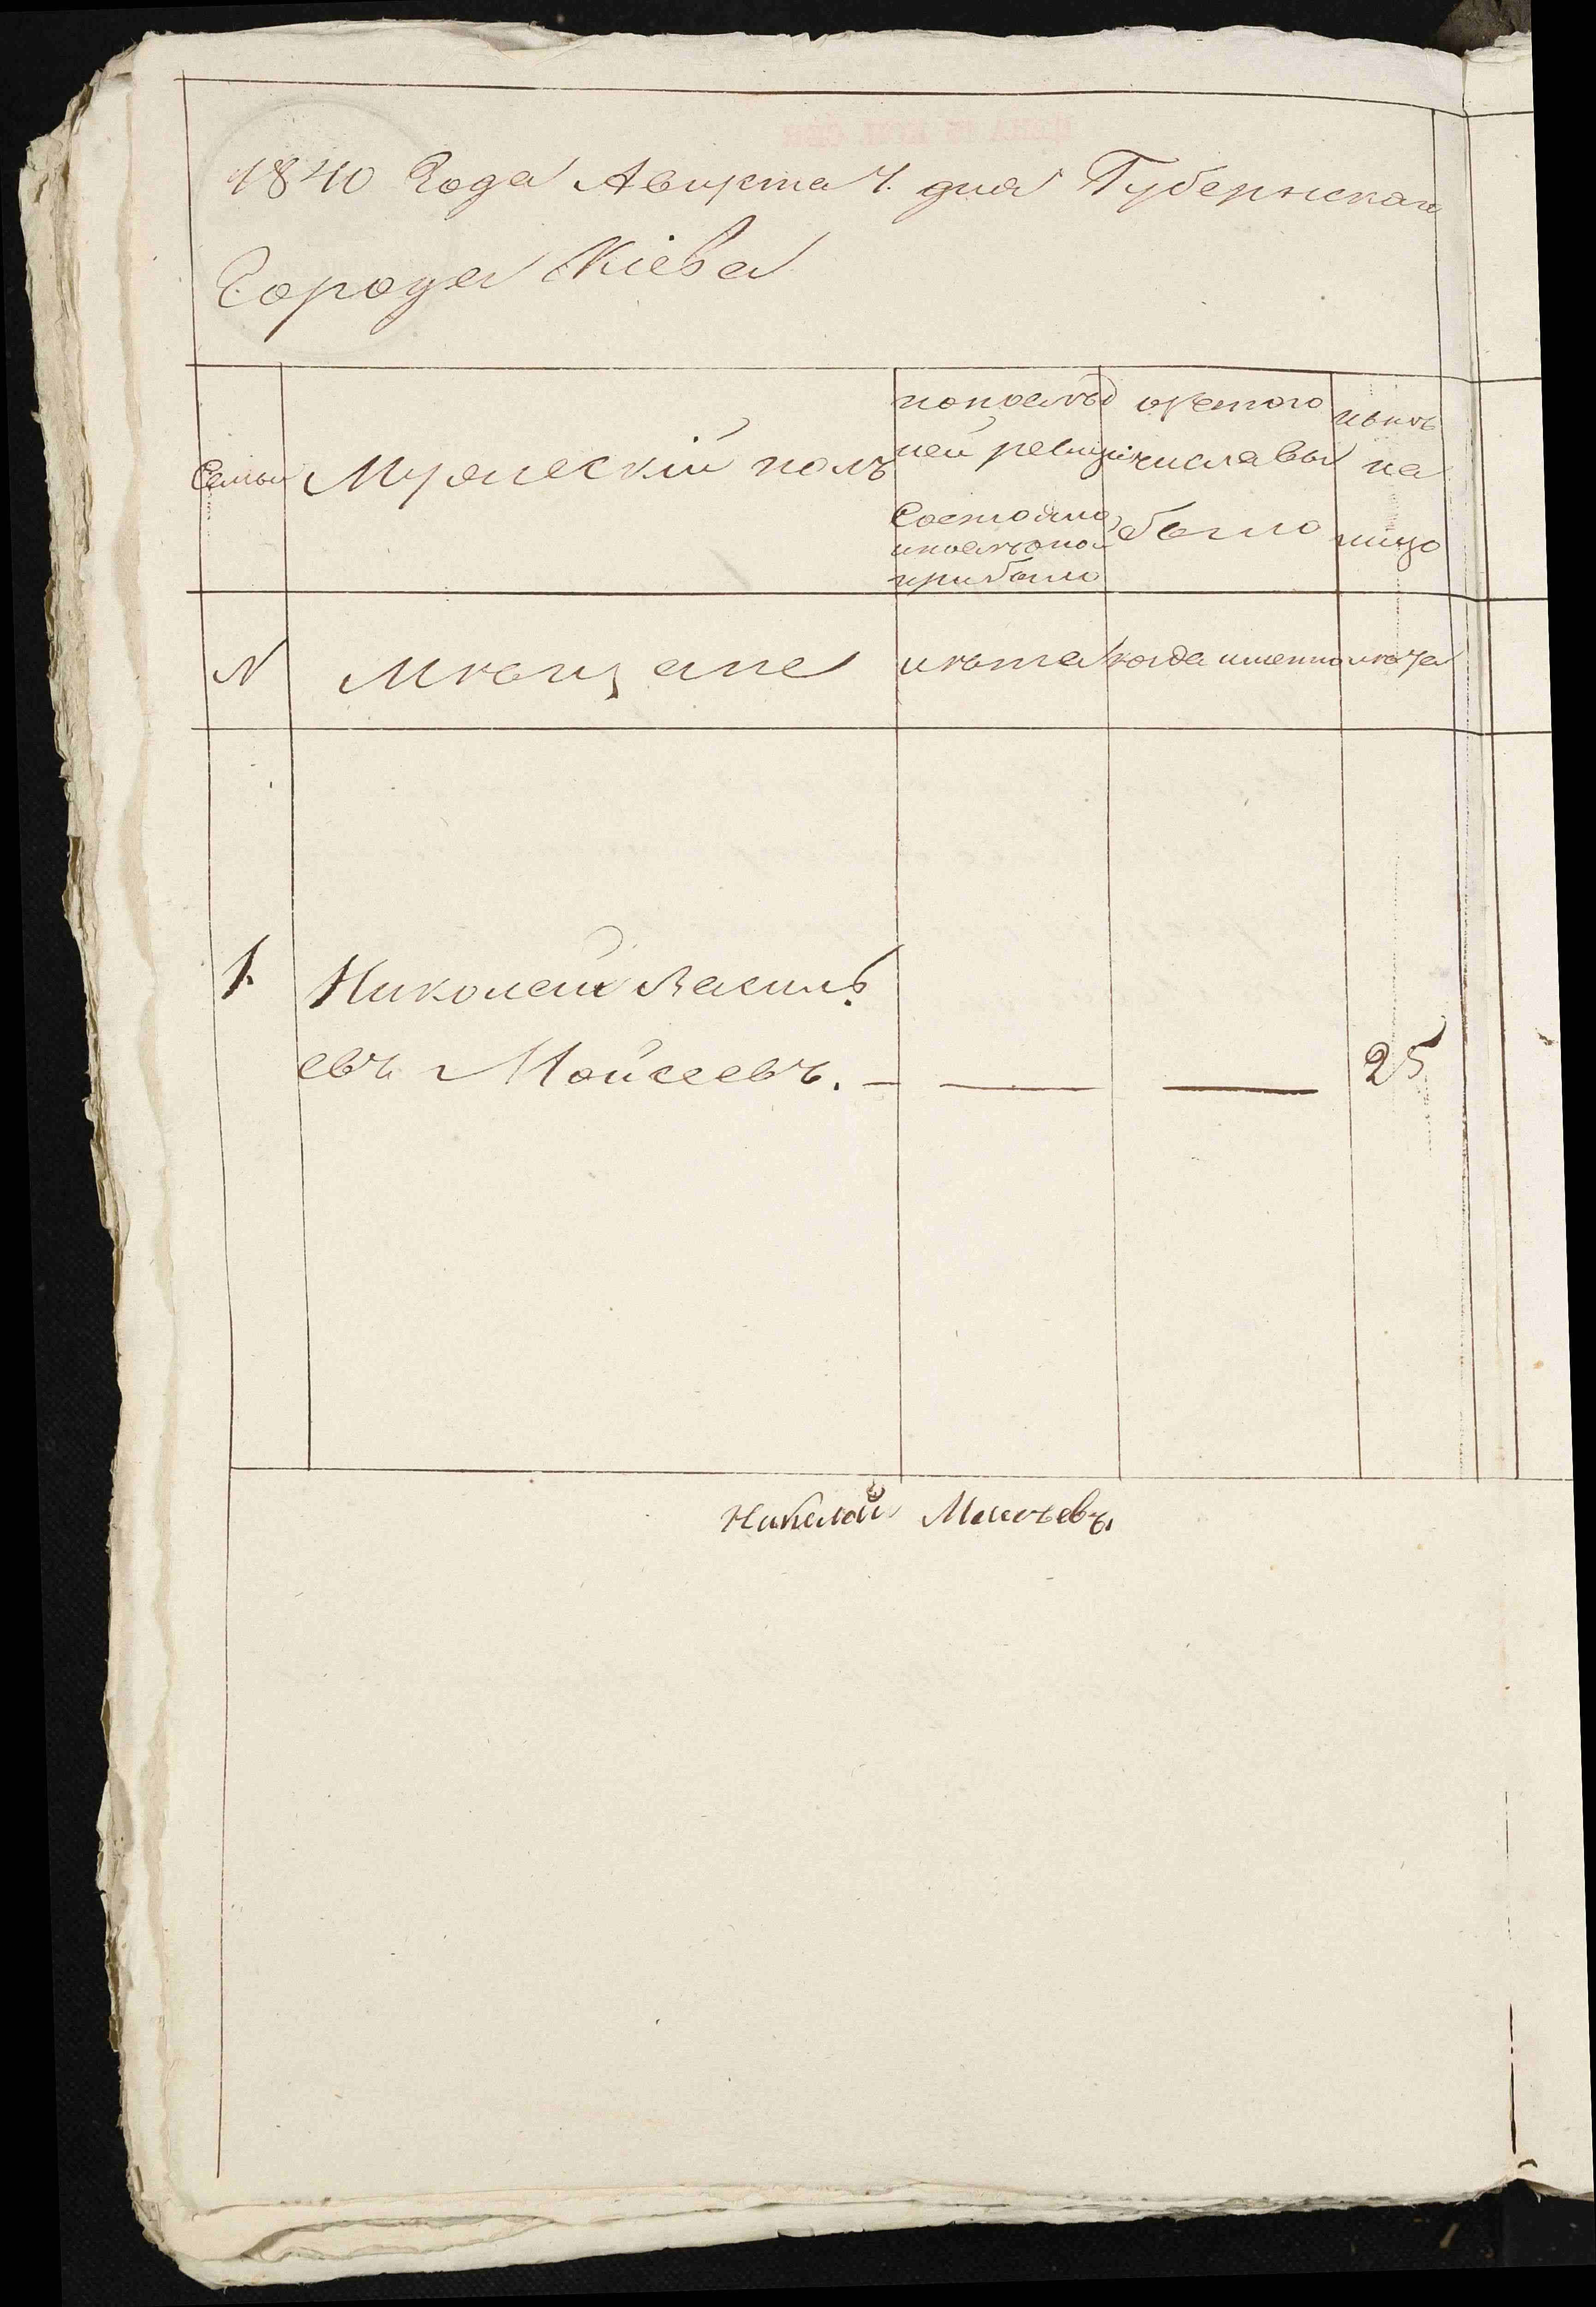 1840 Года Августа 7. дня Губернскаго
Города Кіева
Семьи
Мужескій полъ
попослѣд
ней ревизіи
Состояло
ипослѣоной
прибыло
изътого
числа вы
было
нынѣ
на
лицо
N
Мѣщане
лѣта
когда именно
лѣта
1.
Николай Василь
евъ Мойсеевъ. — — — 25
Николай Мисѣевъ